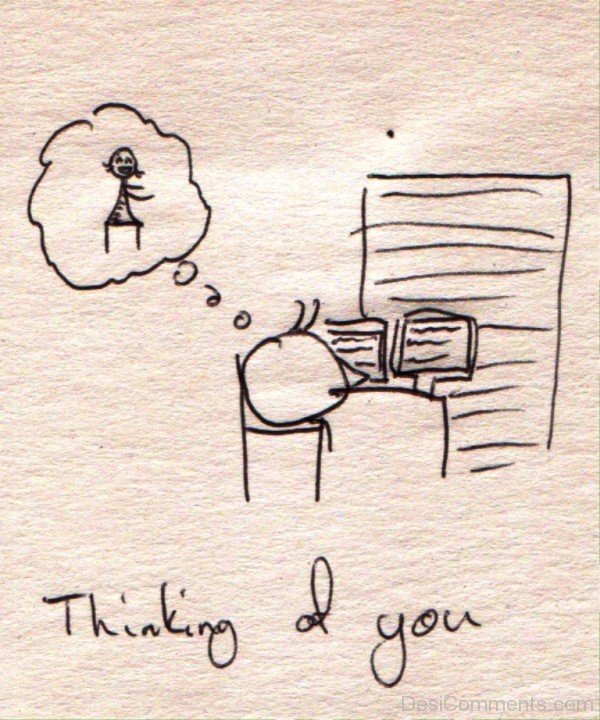 Thinking of you
DesiComments.com